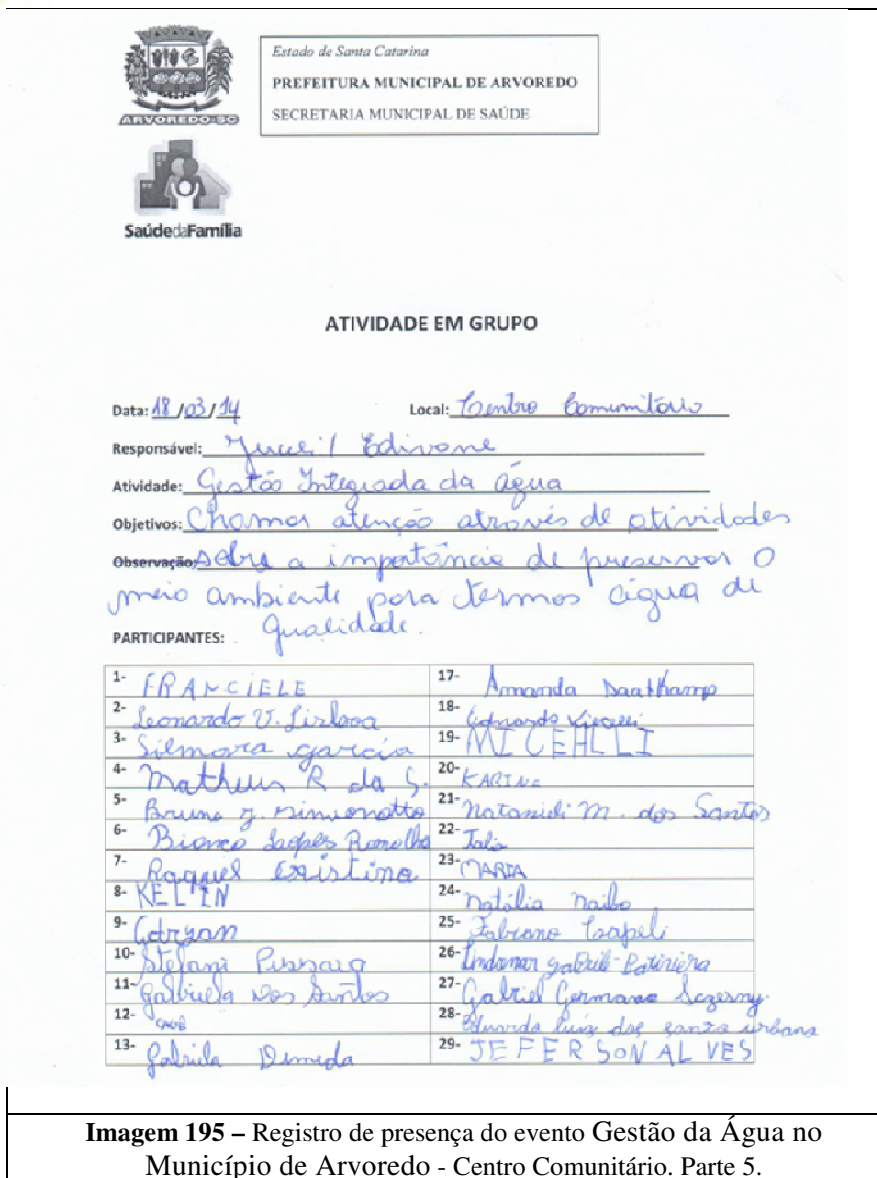 ARVOREDO-SC
Estado de Santa Catarina
PREFEITURA MUNICIPAL DE ARVOREDO
SECRETARIA MUNICIPAL DE SAÚDE
SaúdedaFamília
ATIVIDADE EM GRUPO
Data: 18/03/14 Local: Centro Comunitário
Responsável: Jucei / Edivone
Atividade: Gestão Integrada da água
Objetivos: Chamar atenção através de atividades
Observação: sobre a importância de preservar o
meio ambiente para termos água de
qualidade.
PARTICIPANTES:
1- FRANCIELE 17- Amanda
2- Leonardo V. Lisboa 18- Eduardo
3- Silmara Garcia 19- MICEHLLI
4- Matheus R da S. 20- KARINE
5- Bruna 21- Natanieli M. dos Santos
6- Bianca Lopes Ramalho 22-
7- Raquel Cristina 23- MARIA
8- KELIN 24- Natália Naibo
9- 25- Fabiano
10- Stefani 26-
11- Gabriella dos Santos 27- Gabriel Germano
12- 28- Eduarda Luiz dos santa urbana
13- Gabriela 29- JEFERSON ALVES
Imagem 195 – Registro de presença do evento Gestão da Água no
Município de Arvoredo - Centro Comunitário. Parte 5.